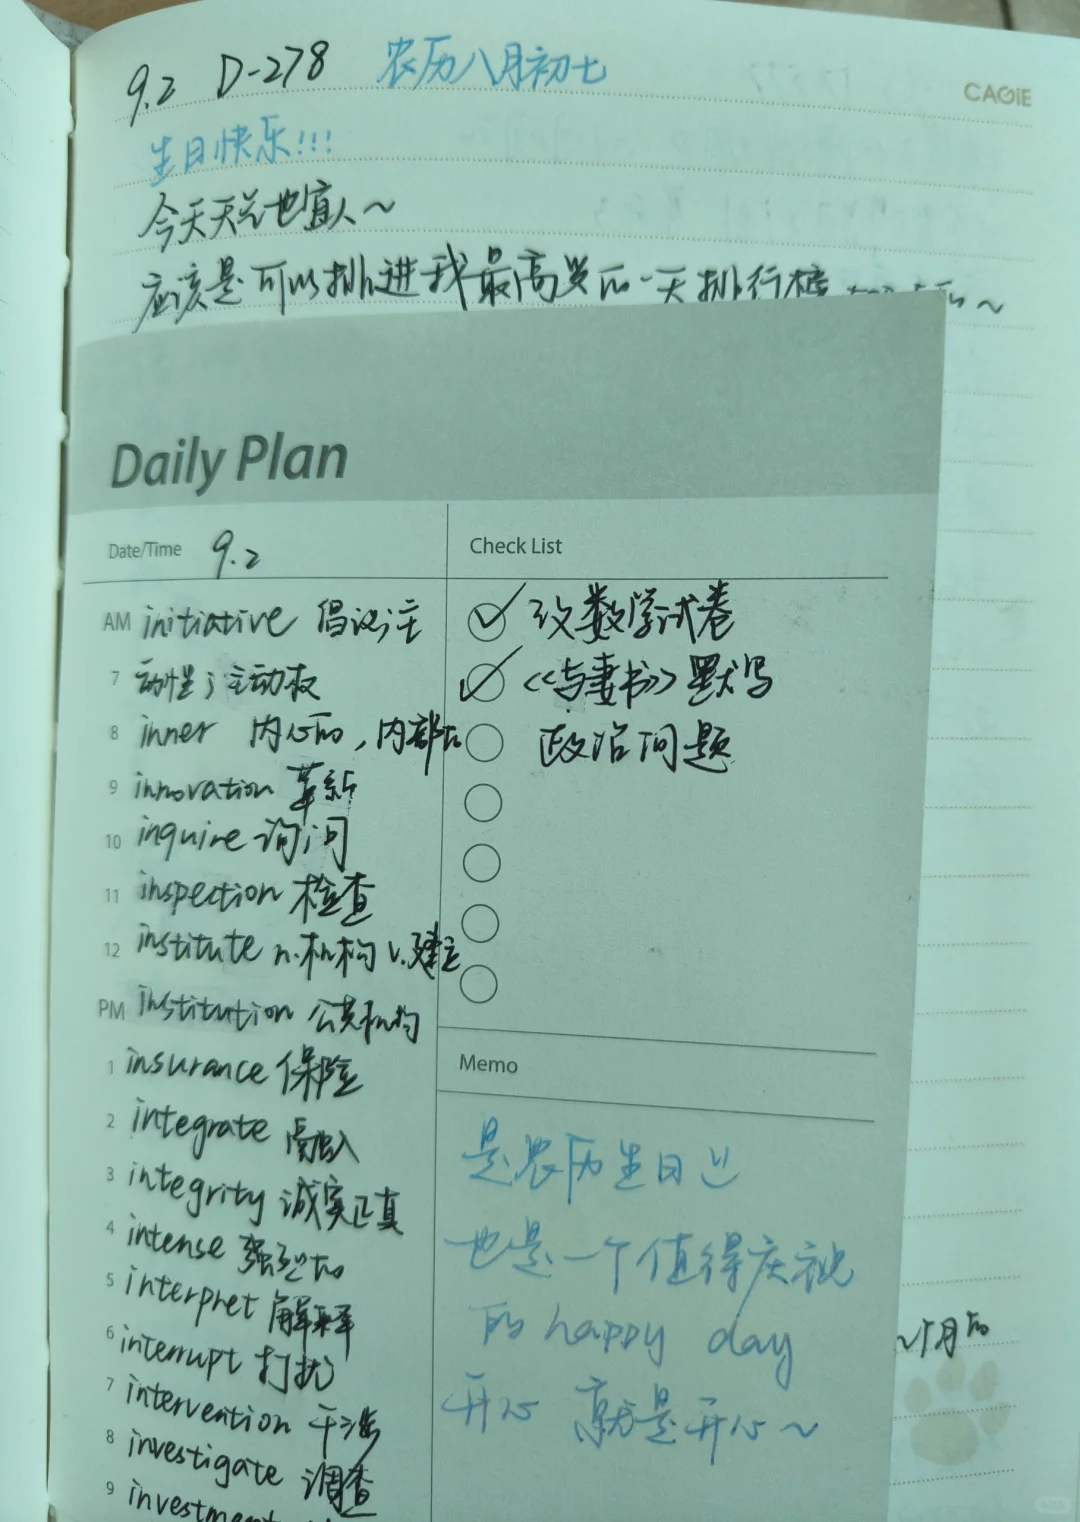 9.2 D-278 农历八月初七
CAGiE
生日快乐!!!
今天天光也宜人~
应该是可以排进我最高兴的一天排行榜
Daily Plan
Date/Time 9.2
AM initiative 倡议;主
7 动性;主动权
8 inner 内心的,内部的
9 innovation 革新
10 inquire 询问
11 inspection 检查
12 institute n.机构 v.建立
PM institution 公共机构
1 insurance 保险
2 integrate 融入
3 integrity 诚实正真
4 intense 强烈的
5 interpret 解释
6 interrupt 打扰
7 intervention 干涉
8 investigate 调查
9 investment
Check List
改数学试卷
《与妻书》默写
政治问题
Memo
是农历生日
也是一个值得庆祝
的 happy day
开心 就是开心~
个月的